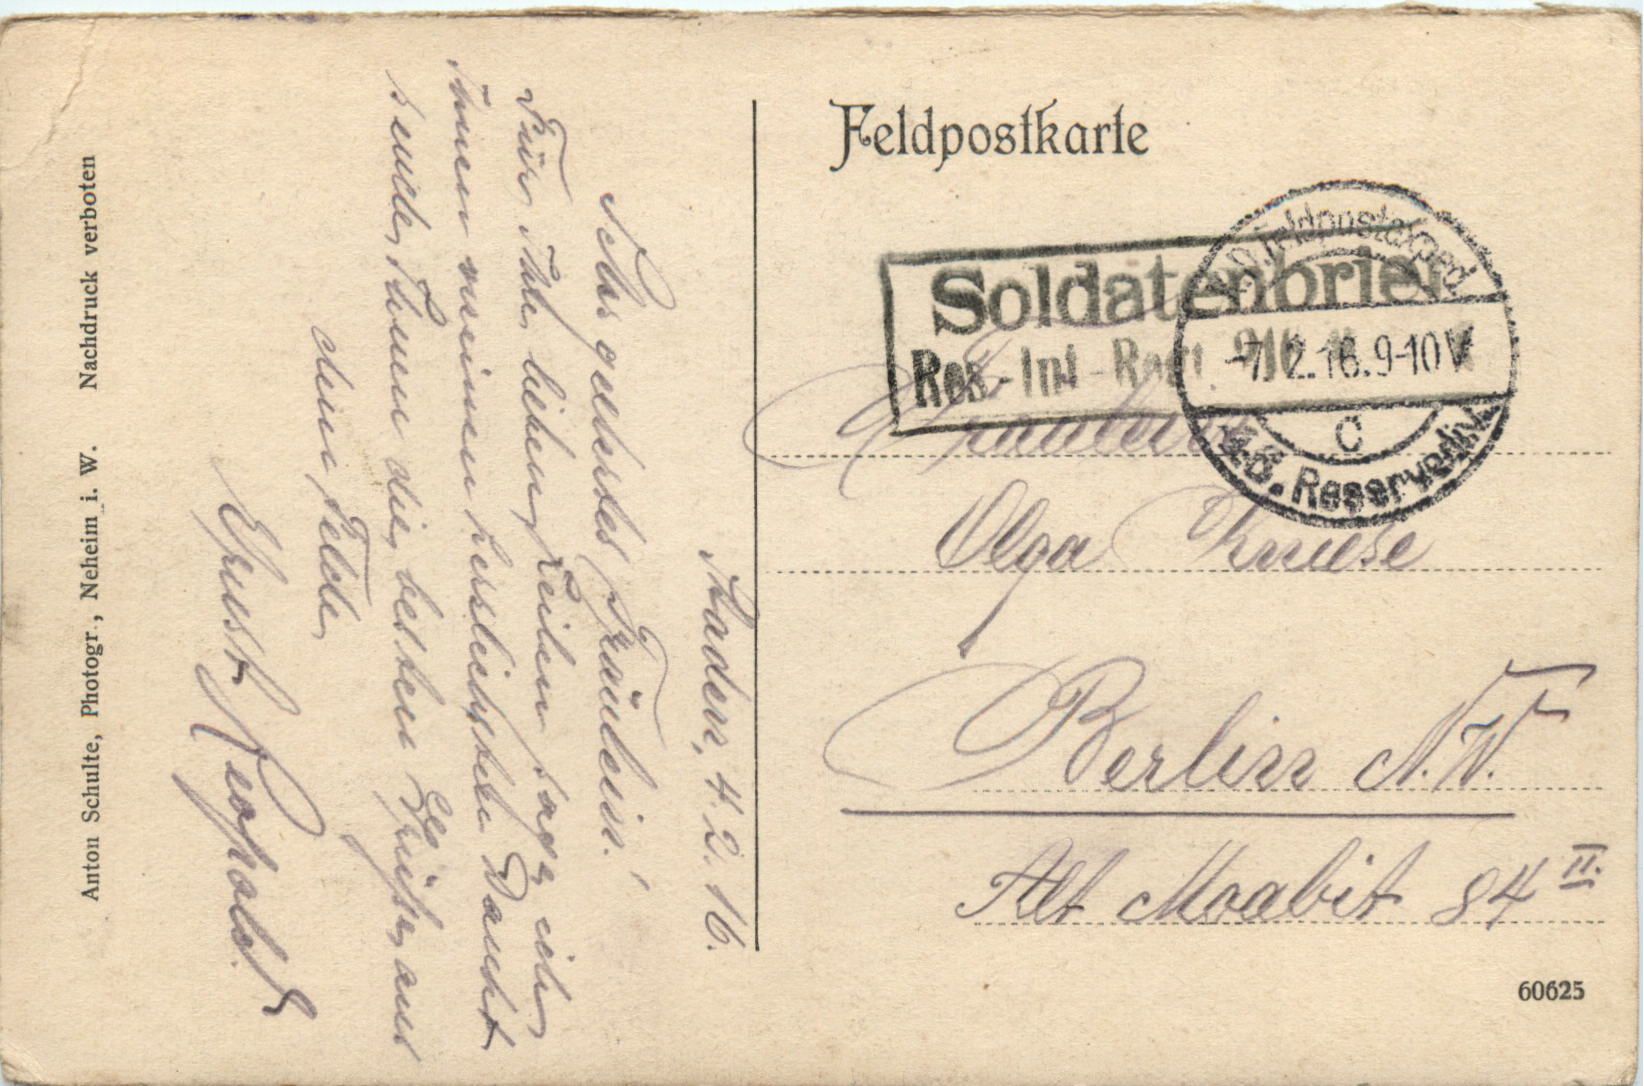 Feldpostkarte
Soldatenbrief
Res.-Inf.-Regt.
K.D. Feldpostexped.
-7.2.16.9-10V
C
Reservediv.
Fräulein
Olga Kruse
Berlin N.W.
Alt Moabit 84 II.
60625
Staden, 4.2.16.
Sehr geehrtes Fräulein!
Für Ihre lieben Zeilen sage ich
Ihnen meinen herzlichsten Dank
sende Ihnen die besten Grüße aus
dem Felde
Ernst Leopold.
Anton Schulte, Photogr., Neheim i. W. Nachdruck verboten